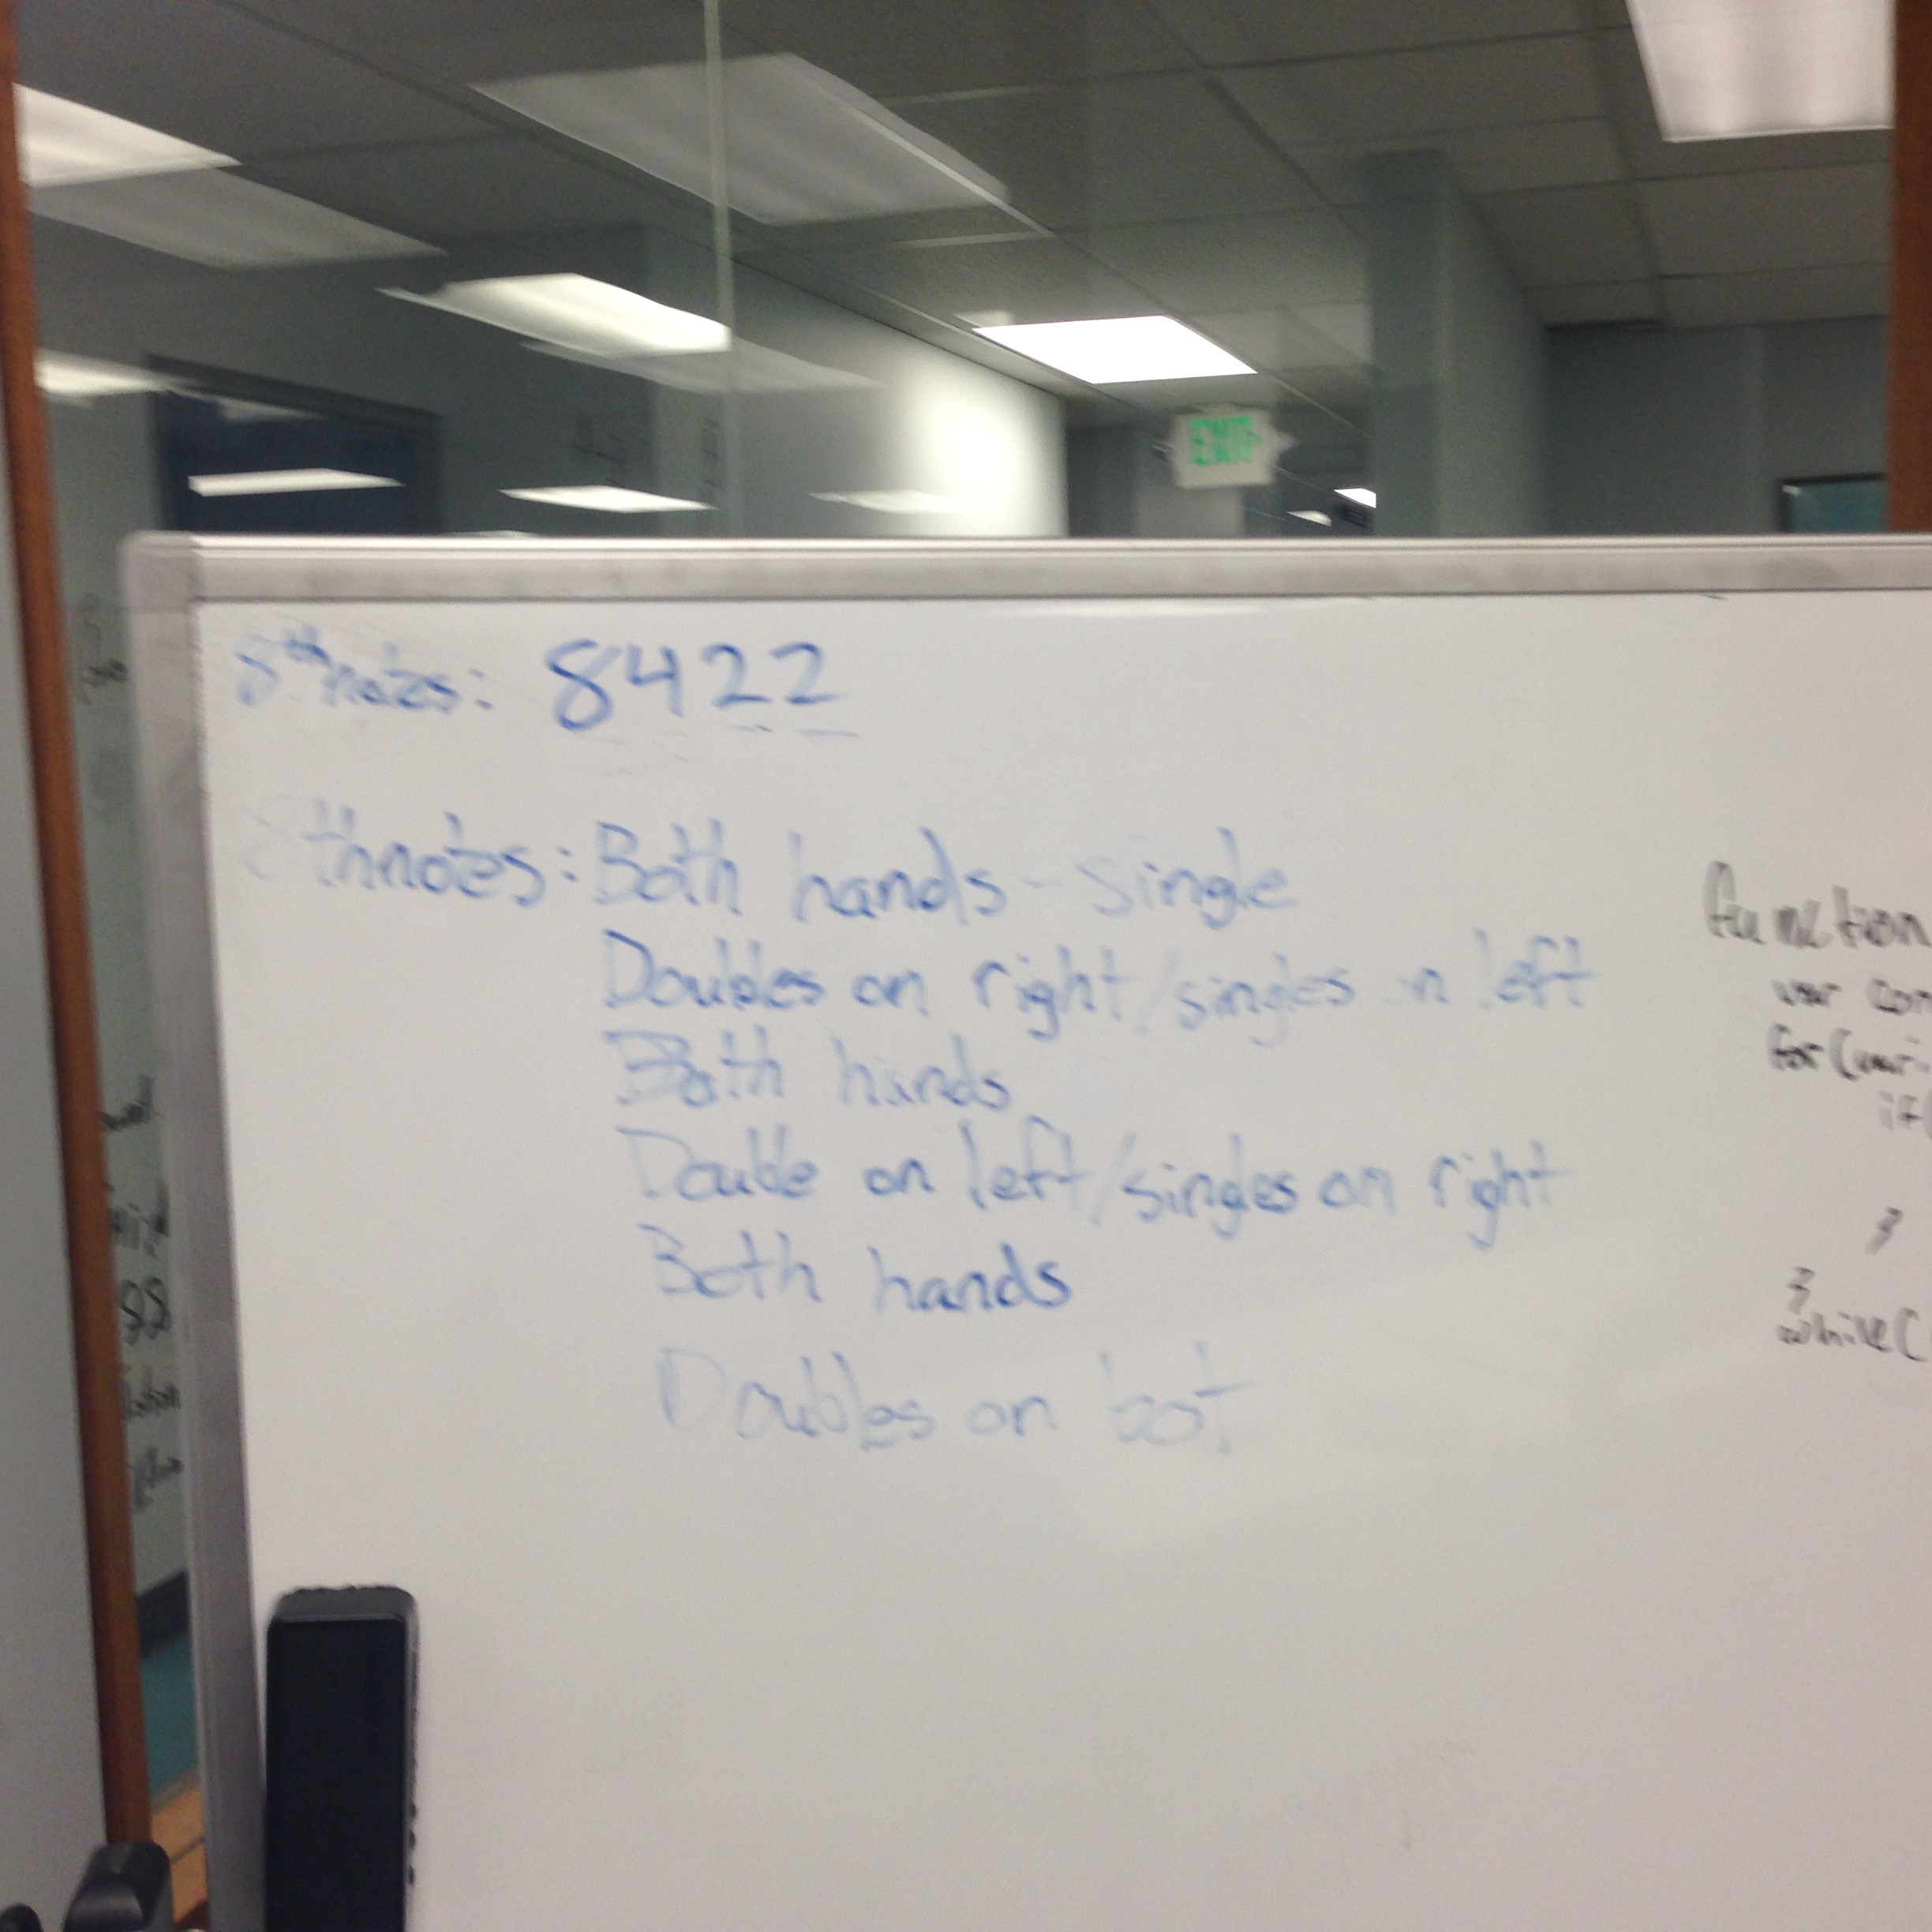 EXIT
8th notes: 8422
thnotes: Both hands - single
Doubles on right/singles on left
Both hands
Double on left/singles on right
Both hands
Doubles on bot
function
var con
for(var i
if(
}
}
while(